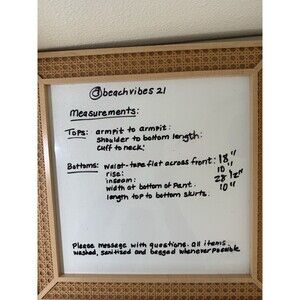 @beachvibes21
Measurements:
Tops: armpit to armpit:
shoulder to bottom length:
cuff to neck:
Bottoms: waist-tape flat across front: 18"
rise: 10"
inseam: 28 1/2"
width at bottom of pant: 10"
length top to bottom skirts:
Please message with questions. all items
washed, sanitized and bagged whenever possible